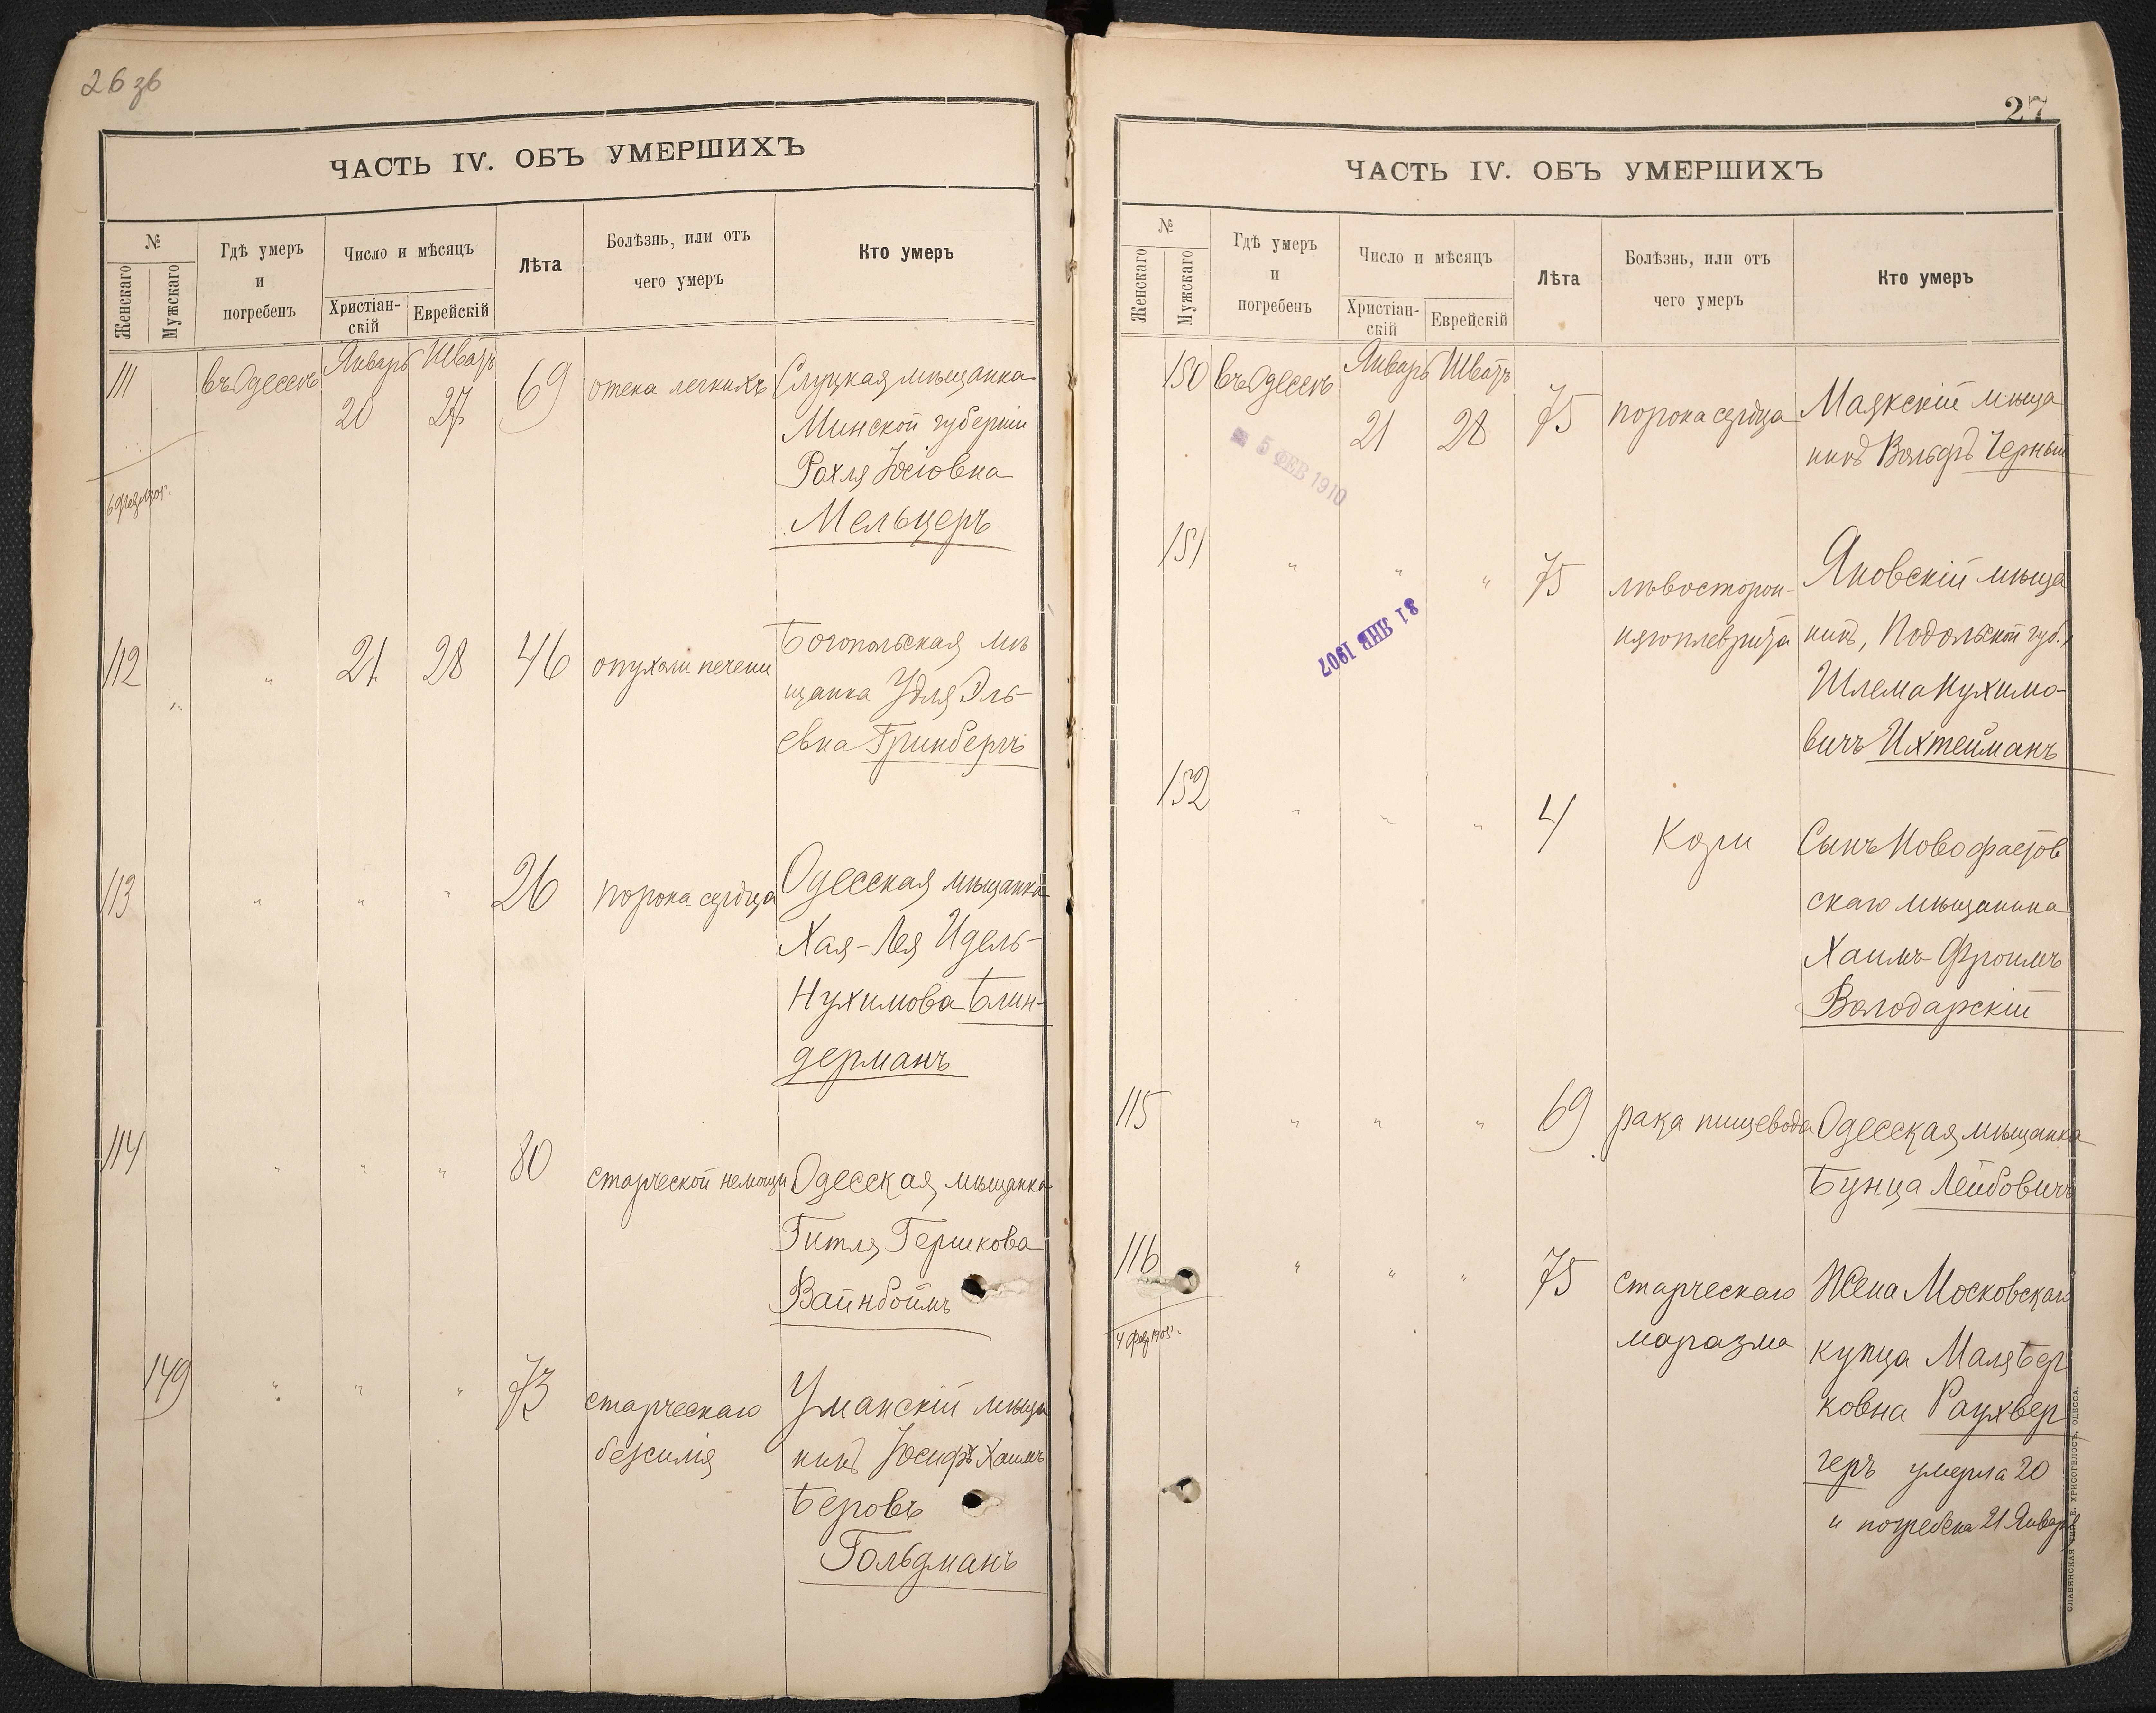 26 зв
ЧАСТЬ IV. ОБЪ УМЕРШИХЪ
№
Женскаго
Мужскаго
Гдѣ умеръ
и
погребенъ
Число и мѣсяцъ
Христіан-
скій
Еврейскій
Лѣта
Болѣзнь, или отъ
чего умеръ
Кто умеръ
111
въ Одессѣ
Январь
20
Шватъ
27
69
отека легкихъ
Слуцкая мѣщанка
Минской губерніи
Рохля Іосіовна
Мельцеръ
112
"
21
28
46
опухоли печени
Богопольская мѣ
щанка Удля Эль-
евна Гринбергъ
113
"
"
"
26
порока сердца
Одесская мѣщанка
Хая-Лея Идель-
Нухимова Блин-
дерманъ
114
"
"
"
80
старческой немощи
Одесская мѣщанка
Гитля Гершкова
Вайнбоймъ
149
"
"
"
73
старческаго
безсилія
Уманскій мѣща
нинъ Іосифъ Хаимъ
Беровъ
Гольдманъ
27
ЧАСТЬ IV. ОБЪ УМЕРШИХЪ
№
Женскаго
Мужскаго
Гдѣ умеръ
и
погребенъ
Число и мѣсяцъ
Христіан-
скій
Еврейскій
Лѣта
Болѣзнь, или отъ
чего умеръ
Кто умеръ
150
въ Одессѣ
Январь
21
Шватъ
28
75
порока сердца
Маякскій мѣща
нинъ Вольфъ Черный
5 ФЕВ 1910
151
"
"
"
75
лѣвосторон-
няго плеврита
Яновскій мѣща
нинъ, Подольской губ.,
Шлема Нухимо-
вичъ Ихтейманъ
31 ЯНВ 1907
152
"
"
"
4
Кори
Сынъ Новофастов
скаго мѣщанина
Хаимъ Фроимъ
Володарскій
115
"
"
"
69
рака пищевода
Одесская мѣщанка
Бунца Лейбовичъ
116
4 фев 1905 г.
"
"
"
75
старческаго
маразма
Жена Московскаго
купца Маля Бер
ковна Раухвер
геръ умерла 20
и погребена 21 Января
СЛАВЯНСКАЯ ТИП. Е. ХРИСОГЕЛОСЪ, ОДЕССА.